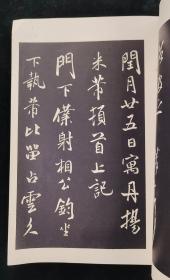 閏月廿五日寓丹揚
米芾頓首上記
門下僕射相公鈞坐
下執芾比留占雲久